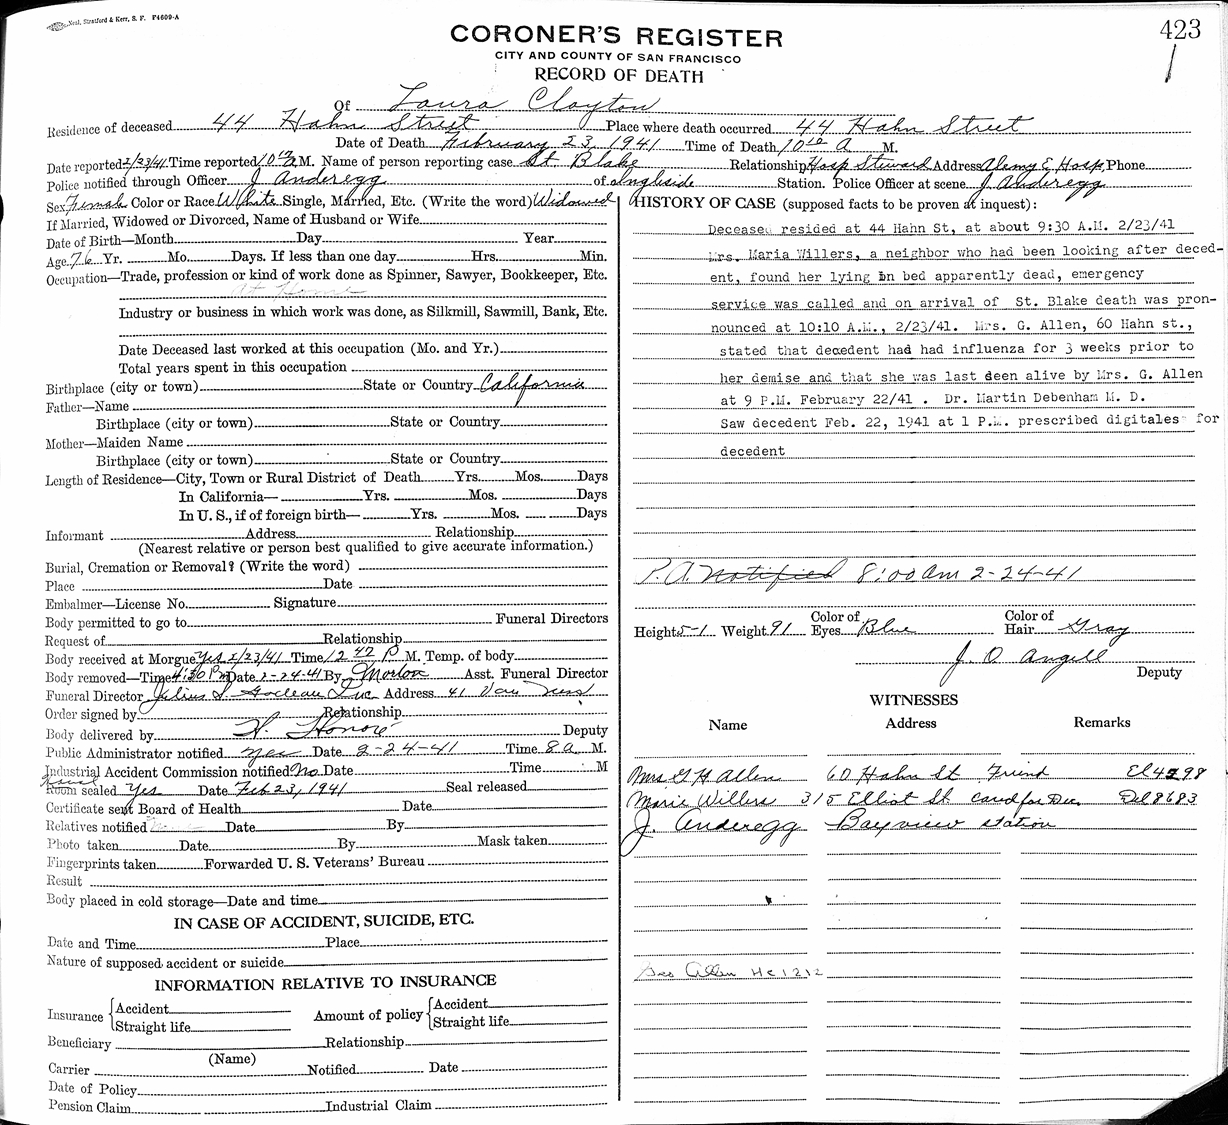 Neal, Stratford & Kerr, S. F. F4609-A
423
CORONER'S REGISTER
CITY AND COUNTY OF SAN FRANCISCO
RECORD OF DEATH
Of Laura Clayton
Residence of deceased 44 Hahn Street Place where death occurred 44 Hahn Street
Date of Death February 23, 1941 Time of Death 10 10 A M.
Date reported 2/23/41 Time reported 10 A M. Name of person reporting case St Blake Relationship Hosp Steward Address Alemy E. Hosp Phone
Police notified through Officer J Anderegg of Ingleside Station. Police Officer at scene J. Anderegg
Sex Female Color or Race White Single, Married, Etc. (Write the word) Widowed
If Married, Widowed or Divorced, Name of Husband or Wife
Date of Birth—Month Day Year
Age 76 Yr. Mo. Days. If less than one day Hrs. Min.
Occupation—Trade, profession or kind of work done as Spinner, Sawyer, Bookkeeper, Etc.
At Home
Industry or business in which work was done, as Silkmill, Sawmill, Bank, Etc.
Date Deceased last worked at this occupation (Mo. and Yr.)
Total years spent in this occupation
Birthplace (city or town) State or Country California
Father—Name
Birthplace (city or town) State or Country
Mother—Maiden Name
Birthplace (city or town) State or Country
Length of Residence—City, Town or Rural District of Death Yrs. Mos. Days
In California— Yrs. Mos. Days
In U. S., if of foreign birth— Yrs. Mos. Days
Informant Address Relationship
(Nearest relative or person best qualified to give accurate information.)
Burial, Cremation or Removal? (Write the word)
Place Date
Embalmer—License No. Signature
Body permitted to go to Funeral Directors
Request of Relationship
Body received at Morgue Yes 2/23/41 Time 12 42 P M. Temp. of body
Body removed—Time 4:30 PM Date 2-24-41 By Morlon Asst. Funeral Director
Funeral Director Julius S. Godeau Inc Address 41 Van Ness
Order signed by Relationship
Body delivered by H. Honore Deputy
Public Administrator notified yes Date 2-24-41 Time 8 A M.
Industrial Accident Commission notified No Date Time M
Room sealed Yes Date Feb 23, 1941 Seal released
Certificate sent Board of Health Date
Relatives notified Date By
Photo taken Date By Mask taken
Fingerprints taken Forwarded U. S. Veterans' Bureau
Result
Body placed in cold storage—Date and time
IN CASE OF ACCIDENT, SUICIDE, ETC.
Date and Time Place
Nature of supposed accident or suicide
INFORMATION RELATIVE TO INSURANCE
Insurance {Accident Amount of policy {Accident
Straight life Straight life
Beneficiary Relationship
(Name)
Carrier Notified Date
Date of Policy
Pension Claim Industrial Claim
HISTORY OF CASE (supposed facts to be proven at inquest):
Deceased resided at 44 Hahn St, at about 9:30 A.M. 2/23/41
Mrs. Maria Willers, a neighbor who had been looking after deced-
ent, found her lying in bed apparently dead, emergency
service was called and on arrival of St. Blake death was pron-
nounced at 10:10 A.M., 2/23/41. Mrs. G. Allen, 60 Hahn st.,
stated that decedent had had influenza for 3 weeks prior to
her demise and that she was last seen alive by Mrs. G. Allen
at 9 P.M. February 22/41 . Dr. Martin Debenham M. D.
Saw decedent Feb. 22, 1941 at 1 P.M. prescribed digitales for
decedent
P. A. notified 8:00 am 2-24-41
Height 5-1 Weight 91 Color of Eyes Blue Color of Hair Gray
J. O. Angell
Deputy
WITNESSES
Name Address Remarks
Mrs G H Allen 60 Hahn St Friend El 4298
Marie Willers 315 Elliot St cared for Dec. Del 8683
J. Anderegg Bayview station
Geo Allen He 1212